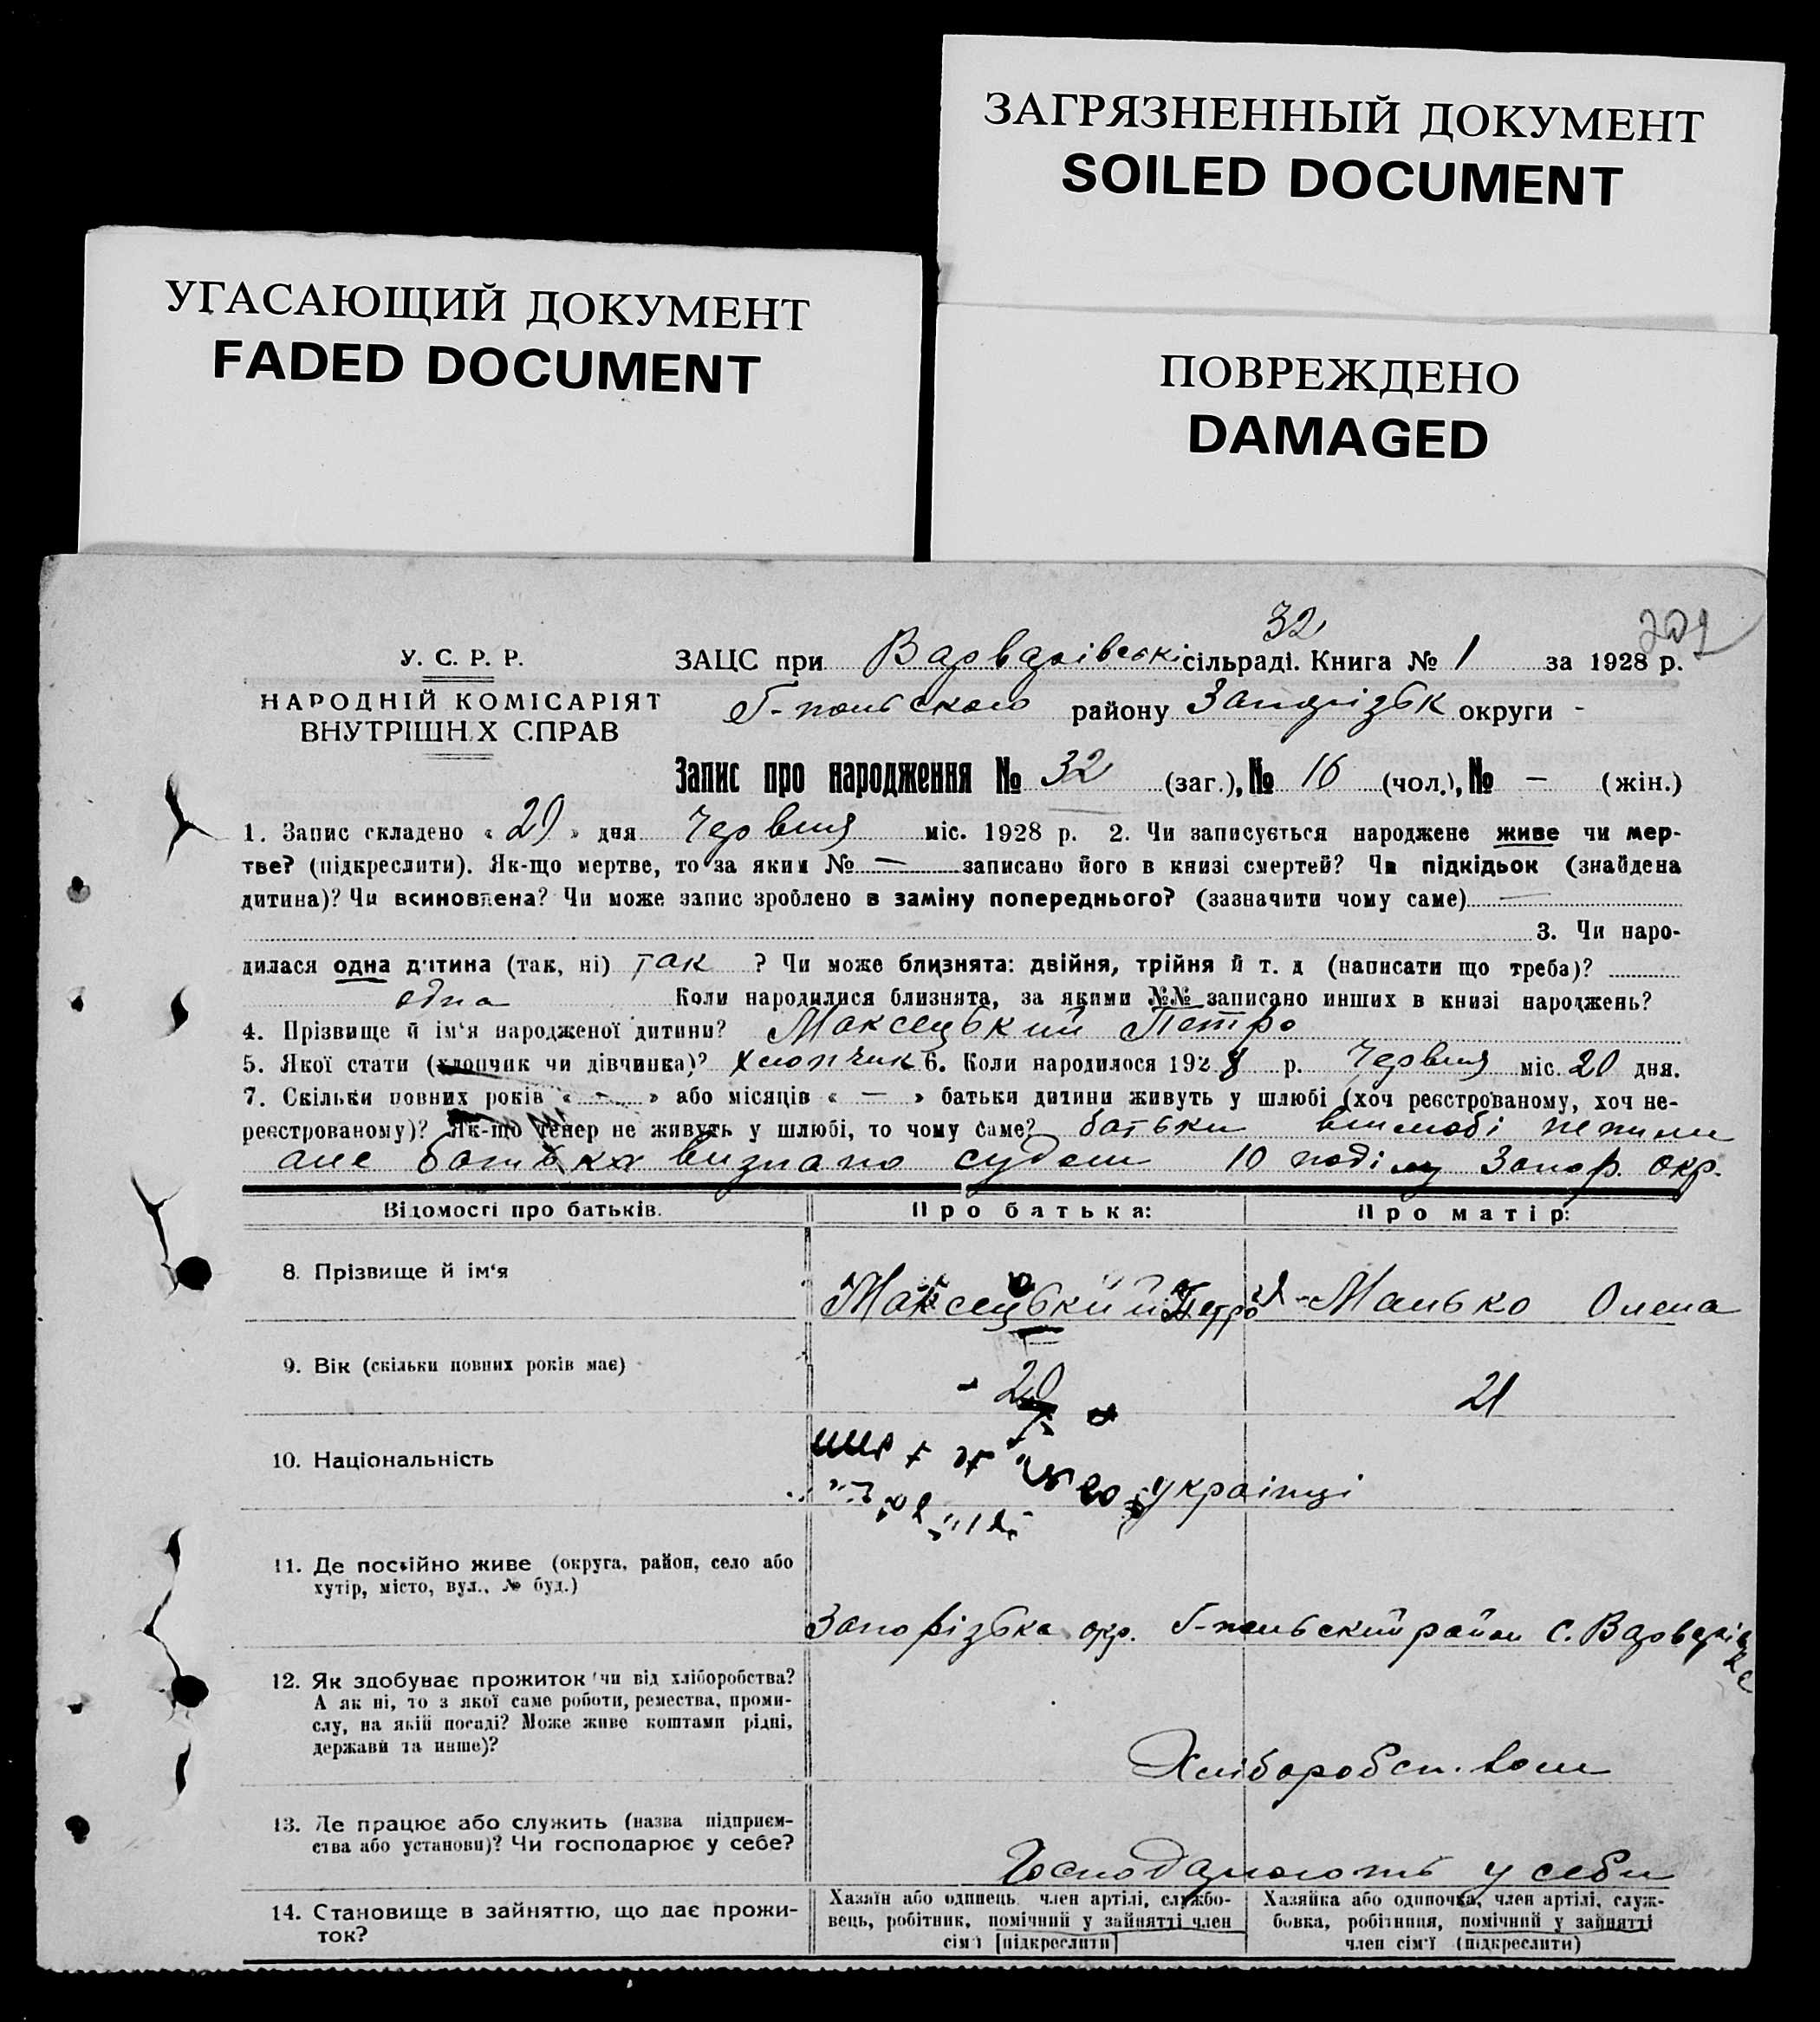 ЗАГРЯЗНЕННЫЙ ДОКУМЕНТ
SOILED DOCUMENT
УГАСАЮЩИЙ ДОКУМЕНТ
FADED DOCUMENT
ПОВРЕЖДЕНО
DAMAGED
32
У. С. Р. Р.
НАРОДНІЙ КОМІСАРІЯТ
ВНУТРІШНІХ СПРАВ
ЗАЦС при Варварівській сільраді. Книга № 1 за 1928 р.
Г-польського району Запорізьк округи -
Запис про народження № 32 (заг.), № 16 (чол.), № - (жін.)
1. Запис складено « 29 » дня Червня міс. 1928 р. 2. Чи записується народжене живе чи мер-
тве? (підкреслити). Як-що мертве, то за яким № — записано його в книзі смертей? Чи підкідьок (знайдена
дитина)? Чи всиновлена? Чи може запис зроблено в заміну попереднього? (зазначити чому саме) —
3. Чи наро-
дилася одна дитина (так, ні) так ? Чи може близнята: двійня, трійня й т. д (написати що треба)?
одна Коли народилися близнята, за якими №№ записано инших в книзі народжень?
4. Прізвище й ім'я народженої дитини? Максецький Петро
5. Якої стати (хлопчик чи дівчинка)? хлопчик 6. Коли народилося 1928 р. Червня міс. 20 дня.
7. Скільки повних років « — » або місяців « — » батьки дитини живуть у шлюбі (хоч реєстрованому, хоч не-
реєстрованому)? Як-що тепер не живуть у шлюбі, то чому саме? батьки в шлюбі не жили
але батька визнано судом 10 Запор. окр.
Відомості про батьків. Про батька: Про матір:
8. Прізвище й ім'я Максецький Петро Манько Олена
9. Вік (скільки повних років має) 20 21
10. Національність українці
11. Де постійно живе (округа, район, село або
хутір, місто, вул., № буд.)
Запорізька окр. Г-польський район с. Варварівка
12. Як здобуває прожиток чи від хліборобства?
А як ні, то з якої саме роботи, ремества, проми-
слу, на якій посаді? Може живе коштами рідні,
держави та инше)?
Хліборобством
13. Де працює або служить (назва підприєм-
ства або установи)? Чи господарює у себе?
Господарюють у себе
14. Становище в зайняттю, що дає прожи-
ток?
Хазяїн або одинець, член артілі, службо-
вець, робітник, помічний у зайнятті член
сім'ї [підкреслити]
Хазяйка або одиночка, член артілі, служ-
бовка, робітниця, помічний у зайнятті
член сім'ї (підкреслити)